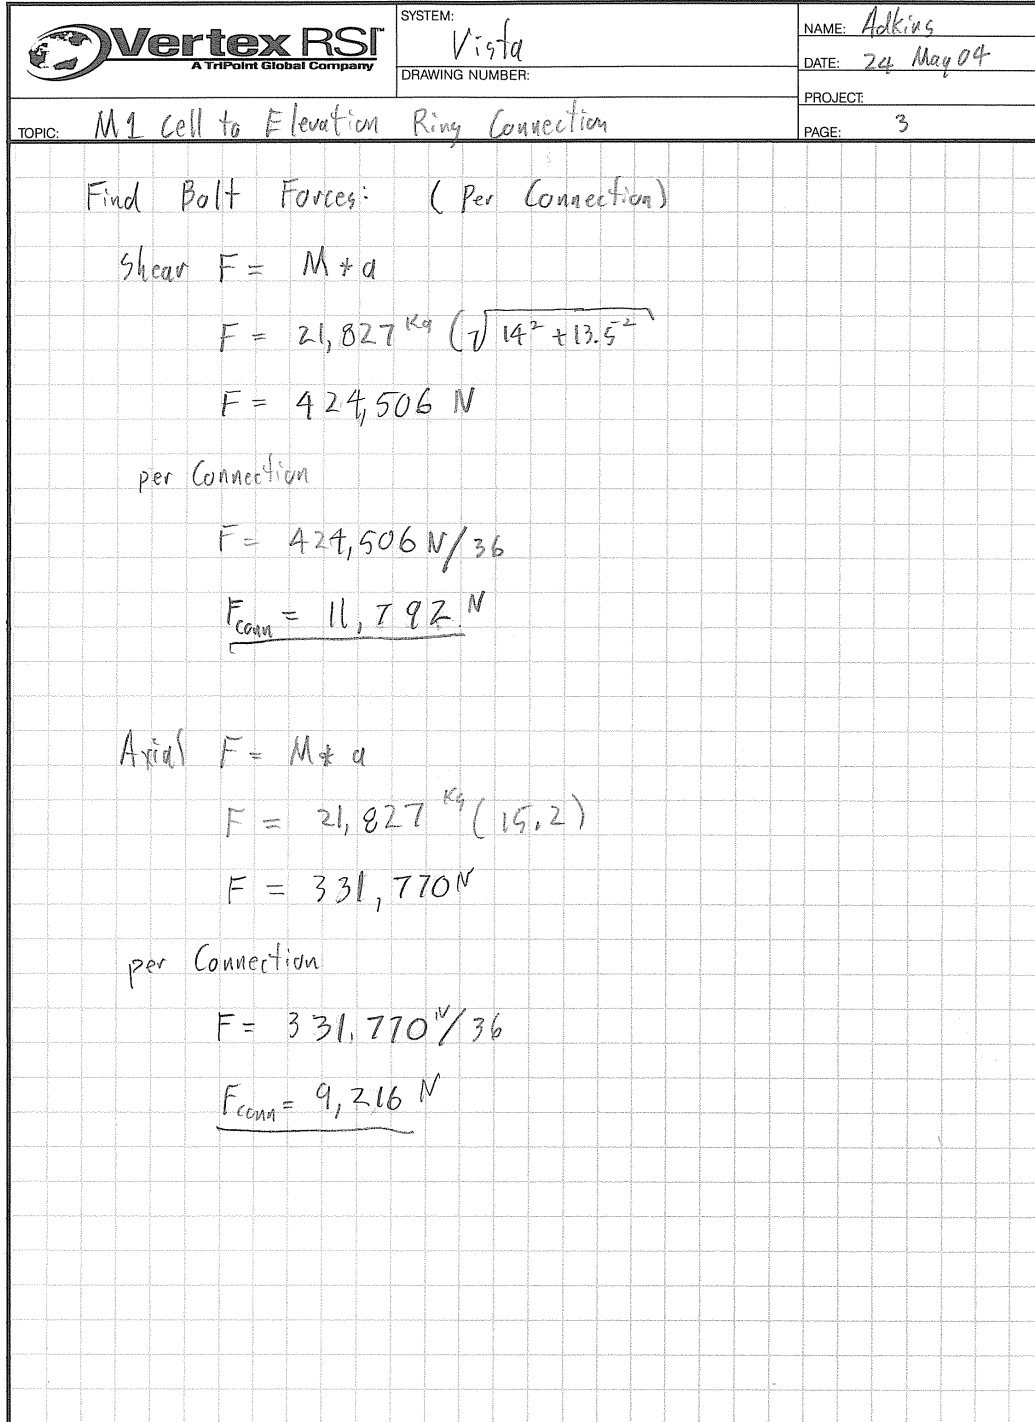 Vertex RSI
A TriPoint Global Company
SYSTEM:
Vista
DRAWING NUMBER:
NAME: Adkins
DATE: 24 May 04
PROJECT:
PAGE: 3
TOPIC: M1 Cell to Elevation Ring Connection
Find Bolt Forces: (Per Connection)
Shear F = M * a
F = 21,827 Kg (√14² + 13.5²
F = 424,506 N
per Connection
F = 424,506 N/36
Fconn = 11,792 N
Axial F = M * a
F = 21,827 Kg (15.2)
F = 331,770 N
per Connection
F = 331,770 N/36
Fconn = 9,216 N